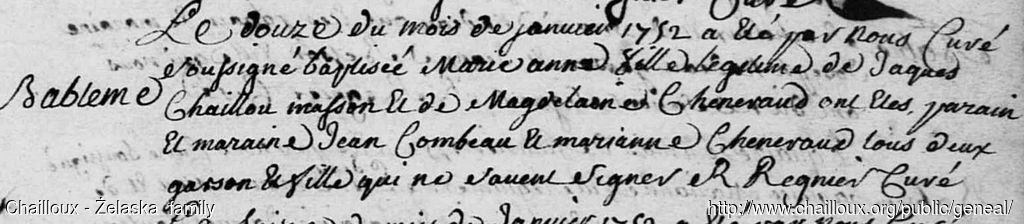 Le douze du mois de janvier 1752 a été par nous Curé
Bableme
soussigné baptiseé Marie anne fille legitime de Jaques
Chaillou masson et de Magdelaine Cheneraud ont etes parain
et maraine Jean Combeau et marianne Cheneraud tous deux
garson et fille qui ne savent signer R Regnier Curé
Chailloux - Želaska family
http://www.chailloux.org/public/geneal/